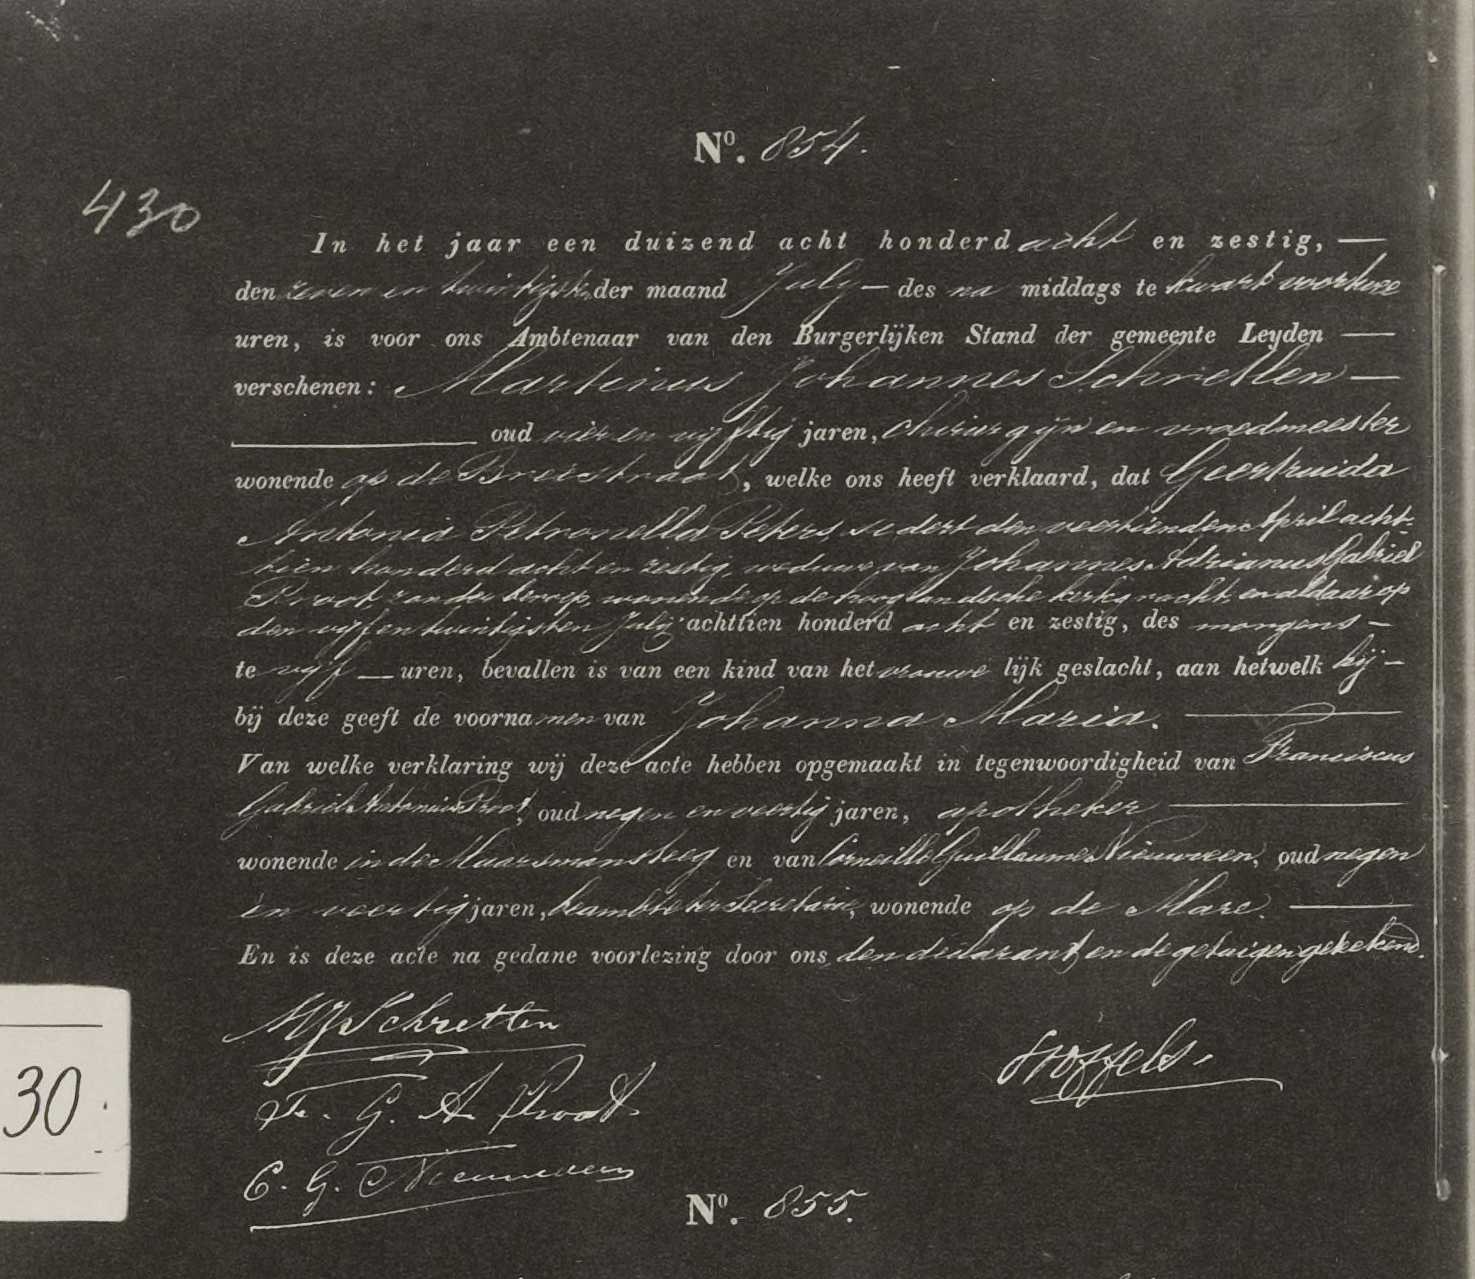 Nº. 854.
430
In het jaar een duizend acht honderd acht en zestig, —
den zeven en twintigsten der maand July — des na middags te kwart voor twee
uren, is voor ons Ambtenaar van den Burgerlijken Stand der gemeente Leyden —
verschenen: Martinus Johannes Schretlen —
oud vier en vijftig jaren, chirurgijn en vroedmeester
wonende op de Breestraat, welke ons heeft verklaard, dat Geertruida
Antonia Petronella Peters, sedert den veertienden April acht-
tien honderd acht en zestig, weduwe van Johannes Adrianus Gabriel
Proot, zonder beroep, wonende op de hooglandsche kerkgracht, en aldaar op
den vijf en twintigsten July achttien honderd acht en zestig, des morgens —
te vijf — uren, bevallen is van een kind van het vrouwelijk geslacht, aan hetwelk hij —
bij deze geeft de voornamen van Johanna Maria. —
Van welke verklaring wij deze acte hebben opgemaakt in tegenwoordigheid van Franciscus
Gabriel Antonius Proot, oud negen en veertig jaren, apotheker —
wonende in de Maarsmansteeg en van Corneille Guillaume Nieuwveen, oud negen
en veertig jaren, beambte ter Secretarie, wonende op de Mare. —
En is deze acte na gedane voorlezing door ons, den declarant en de getuigen geteekend.
MJSchretlen
Stoffels.
Fr. G. A. Proot.
C. G. Nieuwveen
30
Nº. 855.